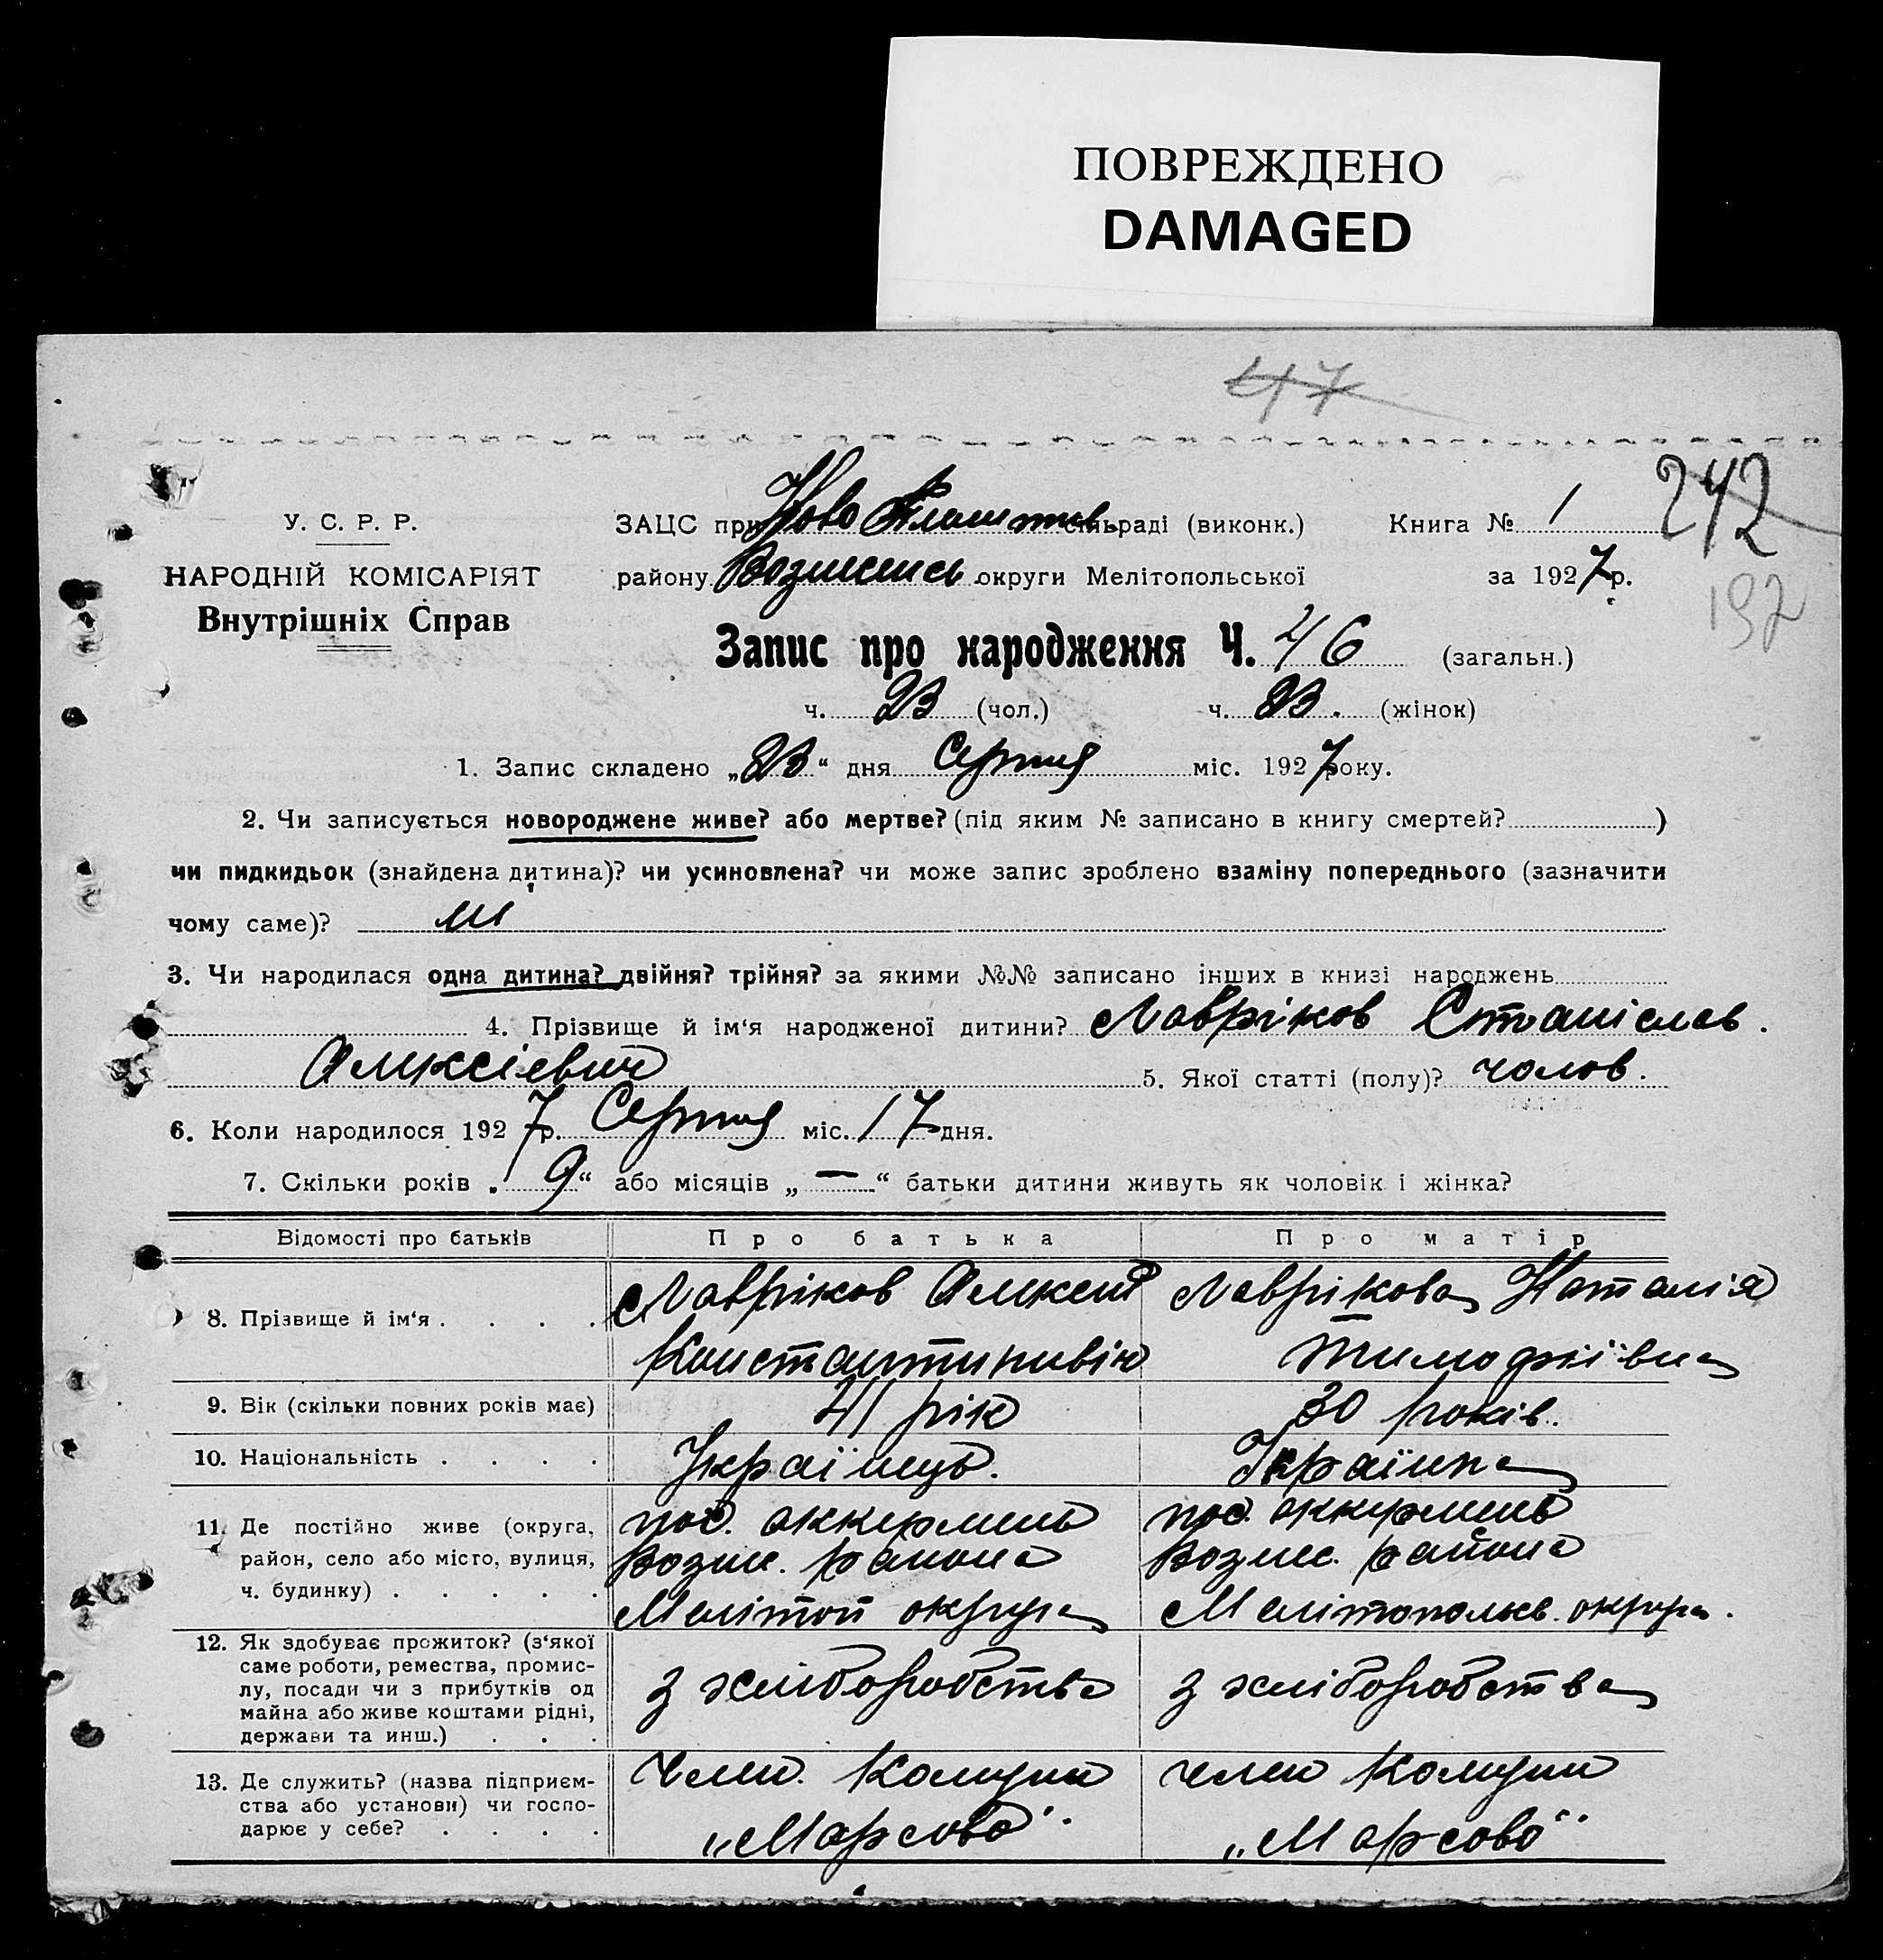 ПОВРЕЖДЕНО
DAMAGED
47
242
У. С. Р. Р.
ЗАЦС при Ново сільраді (виконк.) Книга № 1
НАРОДНІЙ КОМІСАРІЯТ
району округи Мелітопольської за 1927 р.
192
Внутрішніх Справ
Запис про народження Ч. 46 (загальн.)
ч. 23 (чол.) ч. 23. (жінок)
1. Запис складено „23“ дня Серпня міс. 1927 року.
2. Чи записується новороджене живе? або мертве? (під яким № записано в книгу смертей? )
чи пидкидьок (знайдена дитина)? чи усиновлена? чи може запис зроблено взаміну попереднього (зазначити
чому саме)? ні
3. Чи народилася одна дитина? двійня? трійня? за якими №№ записано інших в книзі народжень
4. Прізвище й ім‘я народженої дитини? Лавріков Станіслав.
Алексієвич 5. Якої статті (полу)? чолов.
6. Коли народилося 1927 р. Серпня міс. 17 дня.
7. Скільки років „9“ або місяців „—“ батьки дитини живуть як чоловік і жінка?
Відомості про батьків Про батька Про матір
8. Прізвище й ім‘я . . . . Лавріков Алексій Лаврікова Наталія
Константинович Тимофіївна
9. Вік (скільки повних років має) 41 рік 30 років.
10. Національність . . . . Українець. Українка
11. Де постійно живе (округа, пос. Аккермень пос. Аккермень
район, село або місто, вулиця, Возне. района Вознес. района
ч. будинку) . . . . . Меліто́п округа Мелітопольсь. округа.
12. Як здобуває прожиток? (з‘якої
саме роботи, ремества, промис-
лу, посади чи з прибутків од з хліборобства з хліборобства
майна або живе коштами рідні,
держави та инш.) . . .
13. Де служить? (назва підприєм- Член. Комуни член Комуни
ства або установи) чи госпо-
дарює у себе? . . . . „Марсово“. „Марсово“